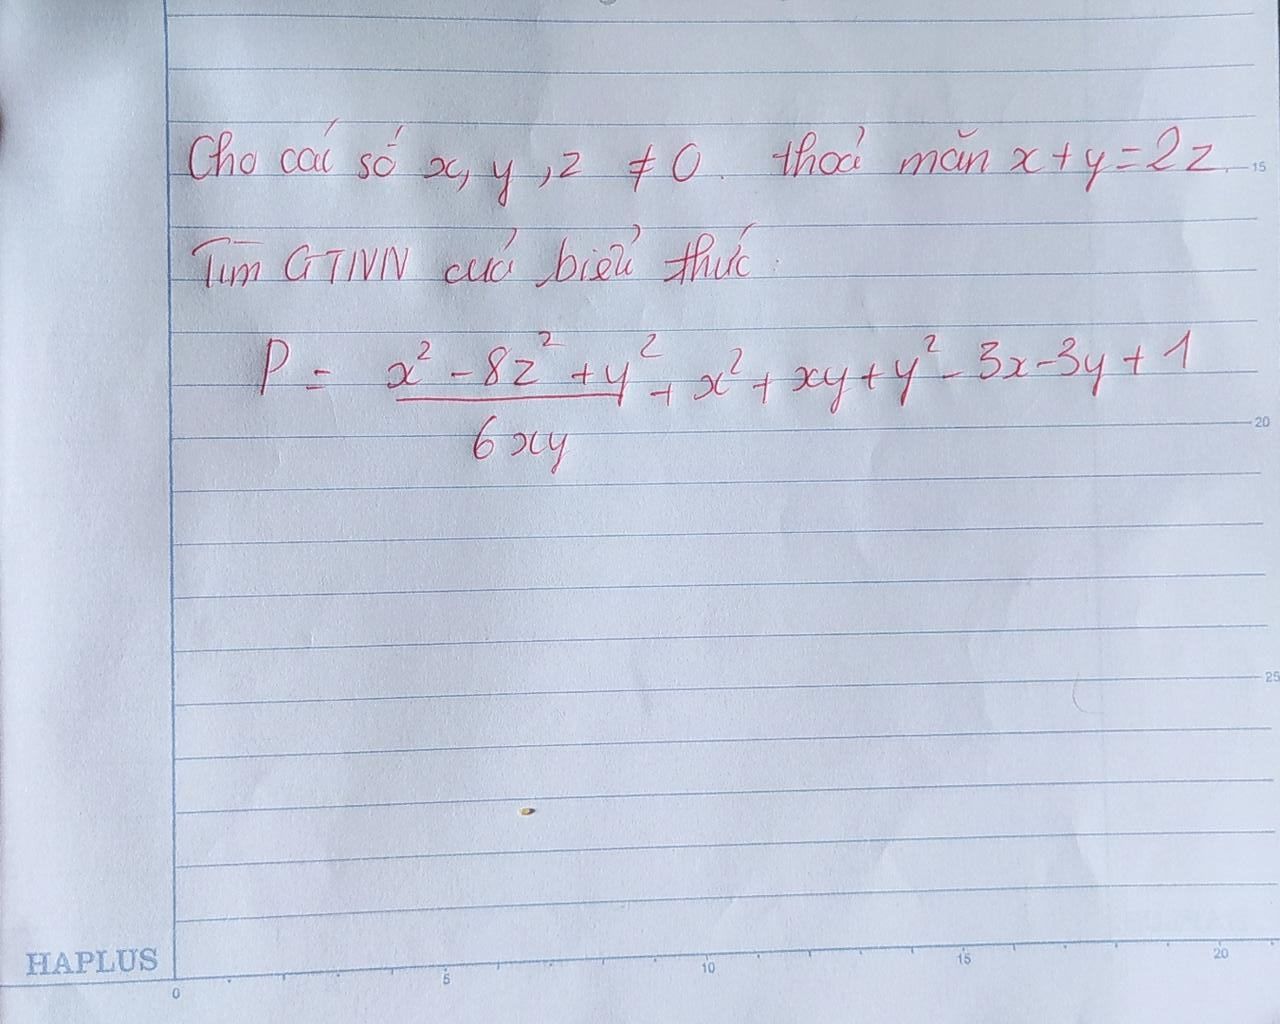 Cho các số x, y, z ≠ 0. thoả mãn x + y = 2z.
Tìm GTNN của biểu thức:
P = (x² - 8z² + y²)/(6xy) + x² + xy + y² - 3x - 3y + 1
15
20
25
HAPLUS
0 5 10 15 20